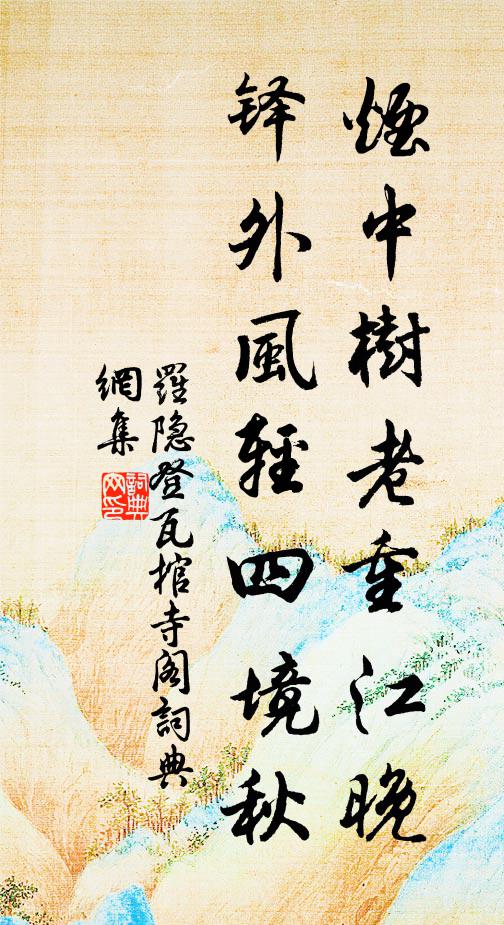 煙中樹老重江晚
铎外風輕四境秋
羅隐登瓦棺寺阁詞典
網集
詞典
网印